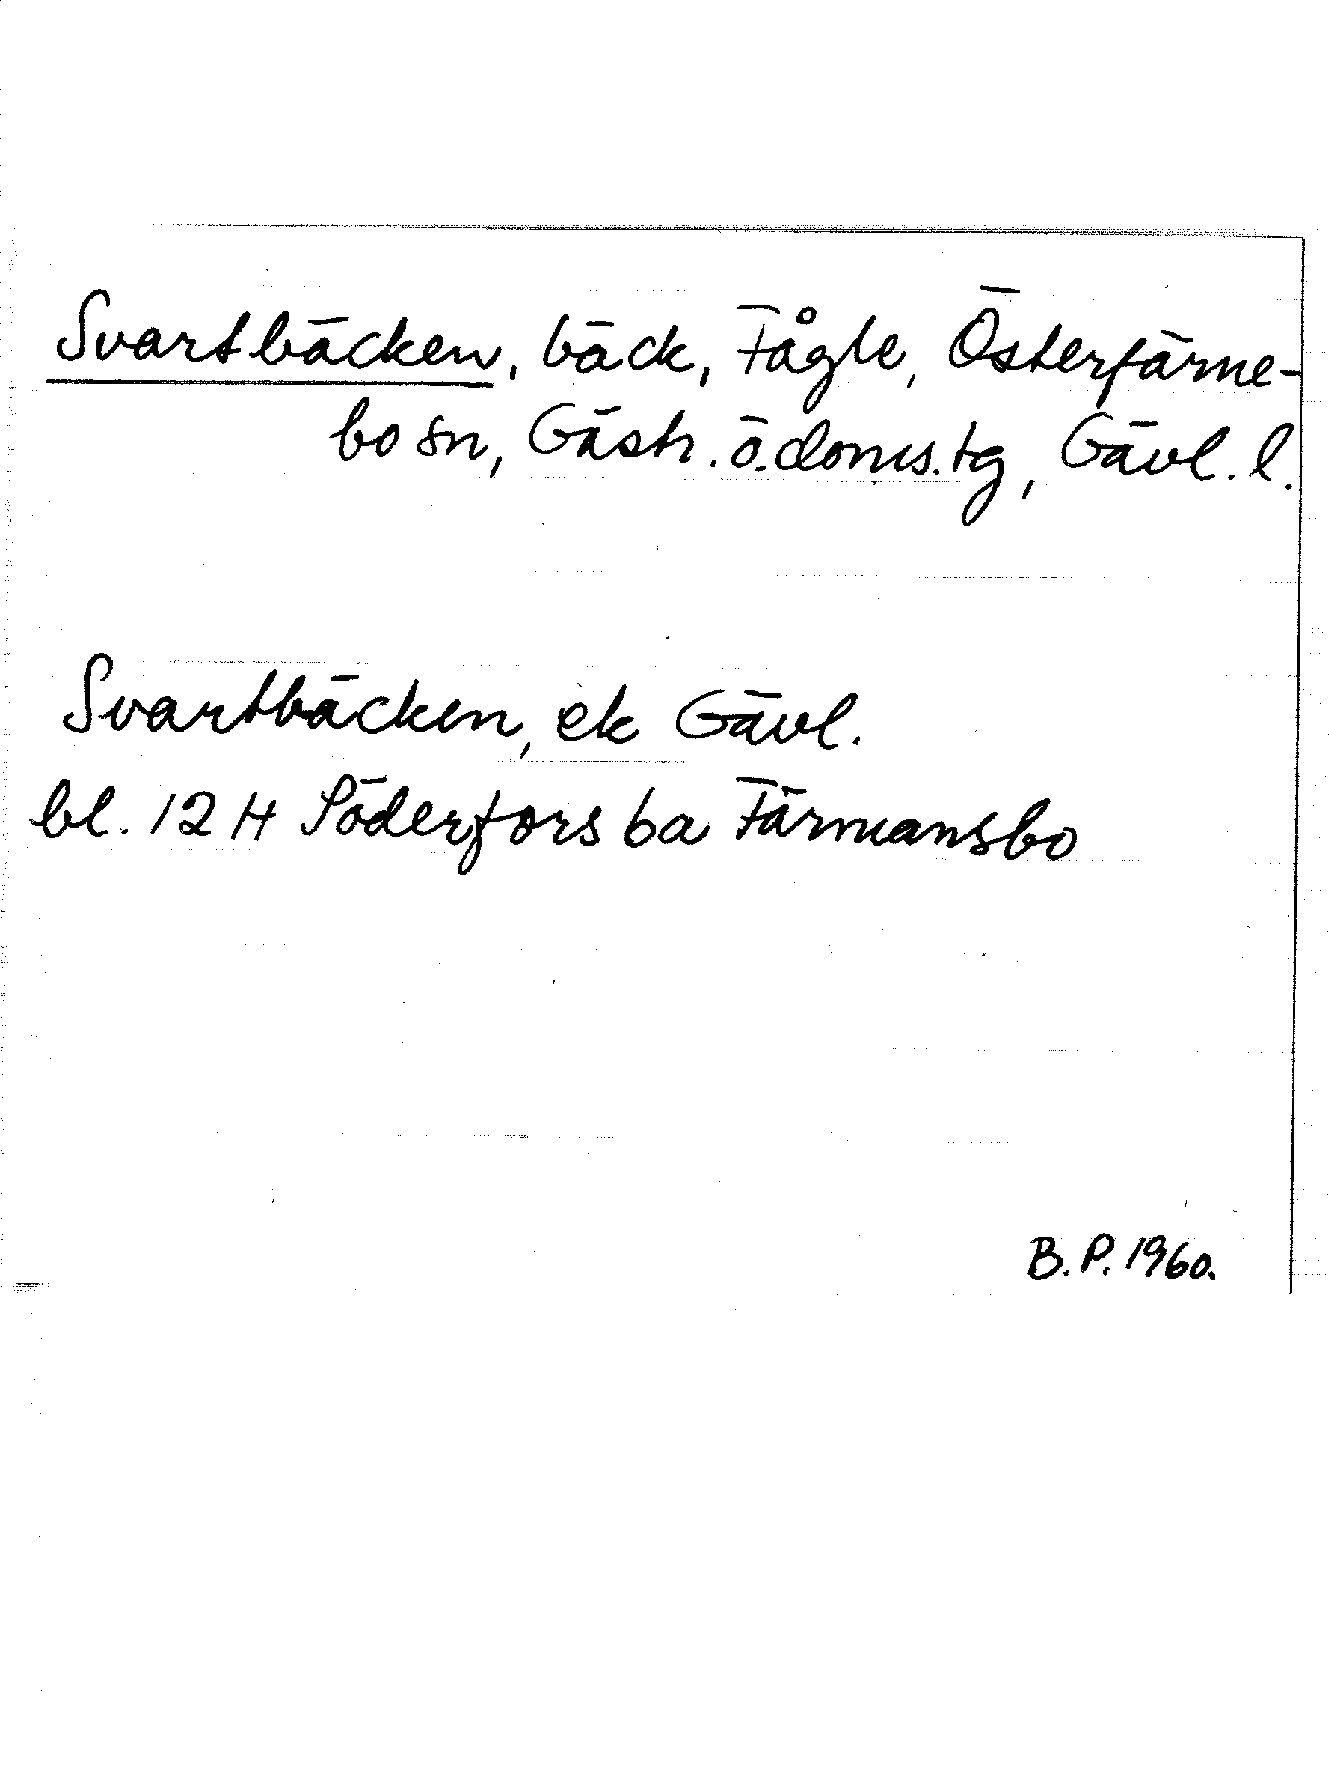 Svartbäcken, bäck, Fågle, Österfärne-
bo sn, Gästr. ö. doms. tg, Gävl. l.
Svartbäcken, ek Gävl.
bl. 12 H Söderfors ba Färmansbo
B. P. 1960.